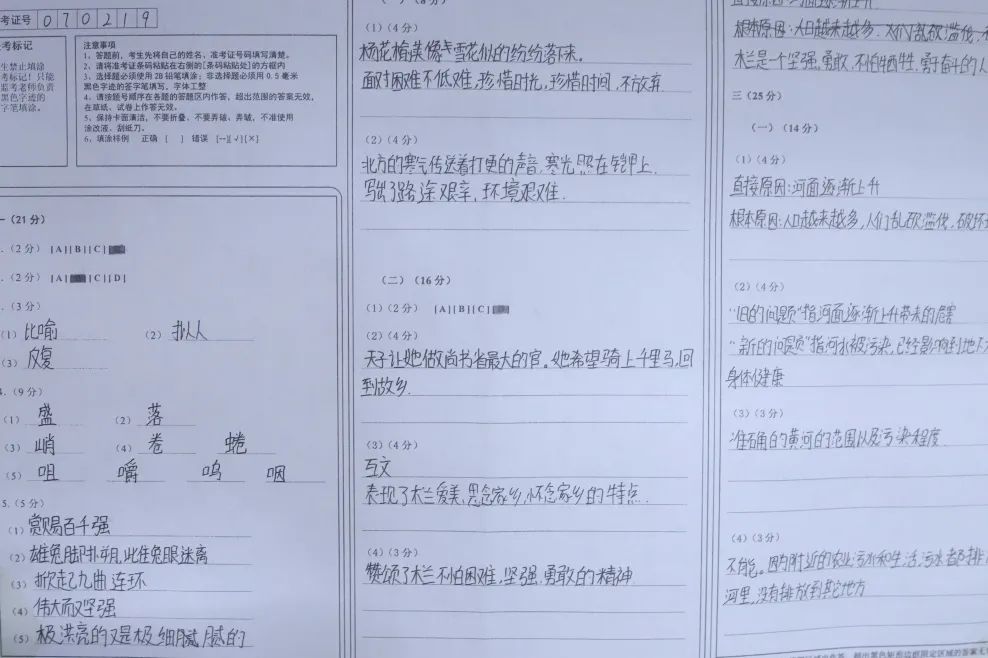 考证号 0 7 0 2 1 9
考标记
生禁止填涂
考标记！只能
监考老师负责
黑色字迹的
字笔填涂。
注意事项
1、答题前，考生先将自己的姓名、准考证号码填写清楚。
2、请将准考证条码粘贴在右侧的[条码粘贴处]的方框内
3、选择题必须使用2B铅笔填涂；非选择题必须用0.5毫米
黑色字迹的签字笔填写，字体工整
4、请按题号顺序在各题的答题区内作答，超出范围的答案无效，
在草纸、试卷上作答无效。
5、保持卡面清洁，不要折叠、不要弄破、弄皱，不准使用
涂改液、刮纸刀。
6、填涂样例 正确 [ ] 错误 [--][√][×]
一（21分）
.（2分） [A][B][C]
.（2分） [A] [C][D]
.（3分）
（1）比喻 （2）拟人
（3）反复
4.（9分）
（1）盛 （2）落
（3）峭 （4）卷 蜷
（5）咀 嚼 呜 咽
5.（5分）
（1）赏赐百千强
（2）雄兔脚扑朔,此住兔眼迷离
（3）折走乙九曲连环
（4）伟大而又坚强
（5）极洪亮的又是极细腻腻的
（一）（8分）
（1）（4分）
杨花榆荚像雪花似的纷纷落下来。
面对困难不低难,珍惜时光,珍惜时间,不放弃.
（2）（4分）
北方的寒气传送着打更的声音,寒光照在铠甲上.
写出了路途艰辛,环境艰难.
（二）（16分）
（1）（2分） [A][B][C]
（2）（4分）
天子让她做尚书省最大的官。她希望骑上千里马,回
到故乡.
（3）（4分）
互文
表现了木兰爱美,思念家乡,怀念家乡的特点.
（4）（3分）
赞颂了木兰不怕困难,坚强,勇敢的精神
直接原因:河面逐渐上升
根本原因:人口越来越多,人们乱砍滥伐,
木兰是个坚强,勇敢,不怕牺牲,勇于奋斗的人
三（25分）
（一）（14分）
（1）（4分）
直接原因:河面逐渐上升
根本原因:人口越来越多,人们乱砍滥伐,破坏
（2）（4分）
"旧的问题"指河面逐渐上升带来的危害
"新的问题"指河水被污染,已经影响到地下
身体健康
（3）（3分）
准确的黄河的范围以及污染程度
（4）（3分）
不能。因为附近的农业污水和生活污水都排
河里,没有排放到其它地方